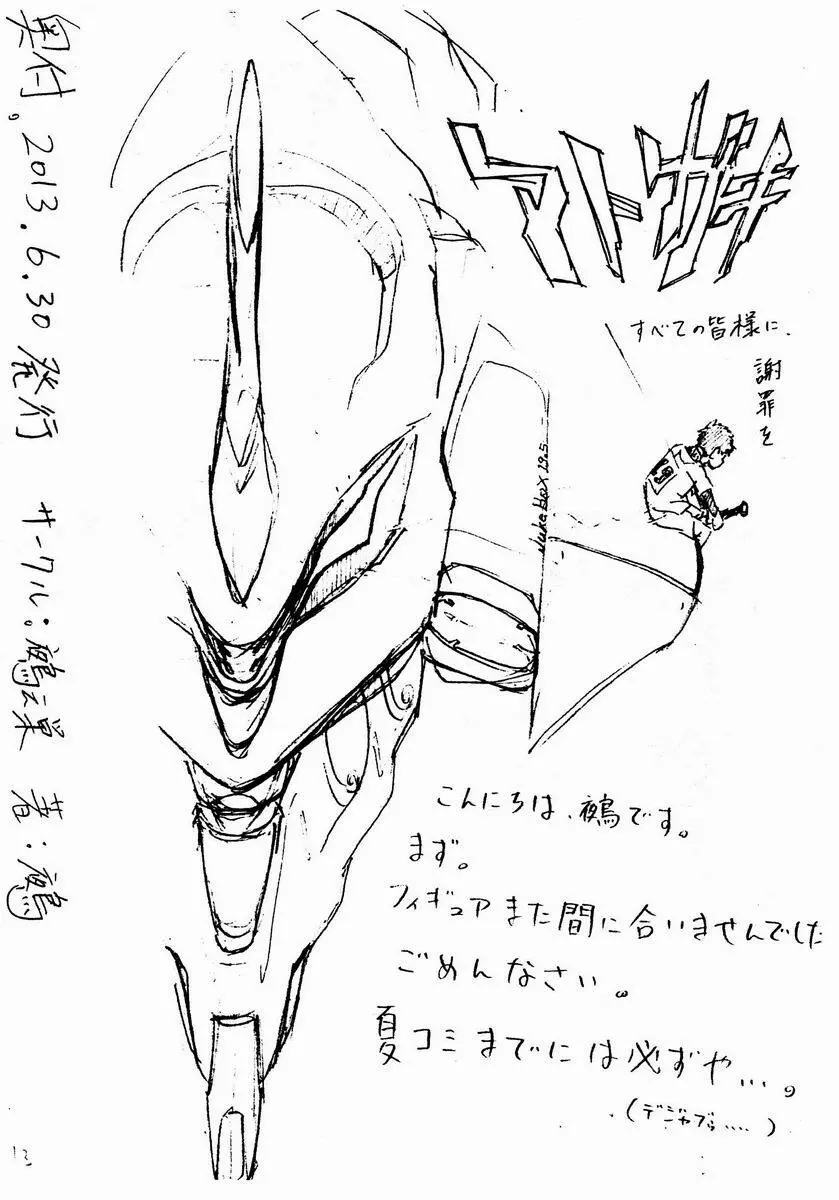 アトガキ
すべての皆様に、
謝罪を
Juke Box 19.5
19
こんにちは、鵺です。
まず。
フィギュアまた間に合いませんでした
ごめんなさい。
夏コミまでには必ずや…。
(デジャブゥ……)
奥付。2013.6.30発行 サークル:鵺之巣 著:鵺
13